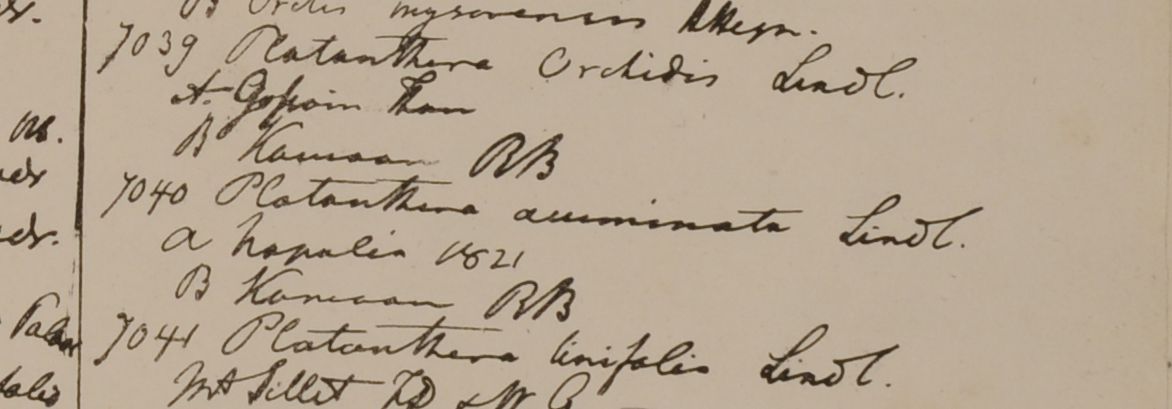 B Orchis mysorensis
7039 Platanthera Orchidis Lindl.
A. Gossain Than
B Kamaon RB
7040 Platanthera acuminata Lindl.
a Napalia 1821
B Kamaon RB
7041 Platanthera linifolia Lindl.
Mt Sillet FD & W G